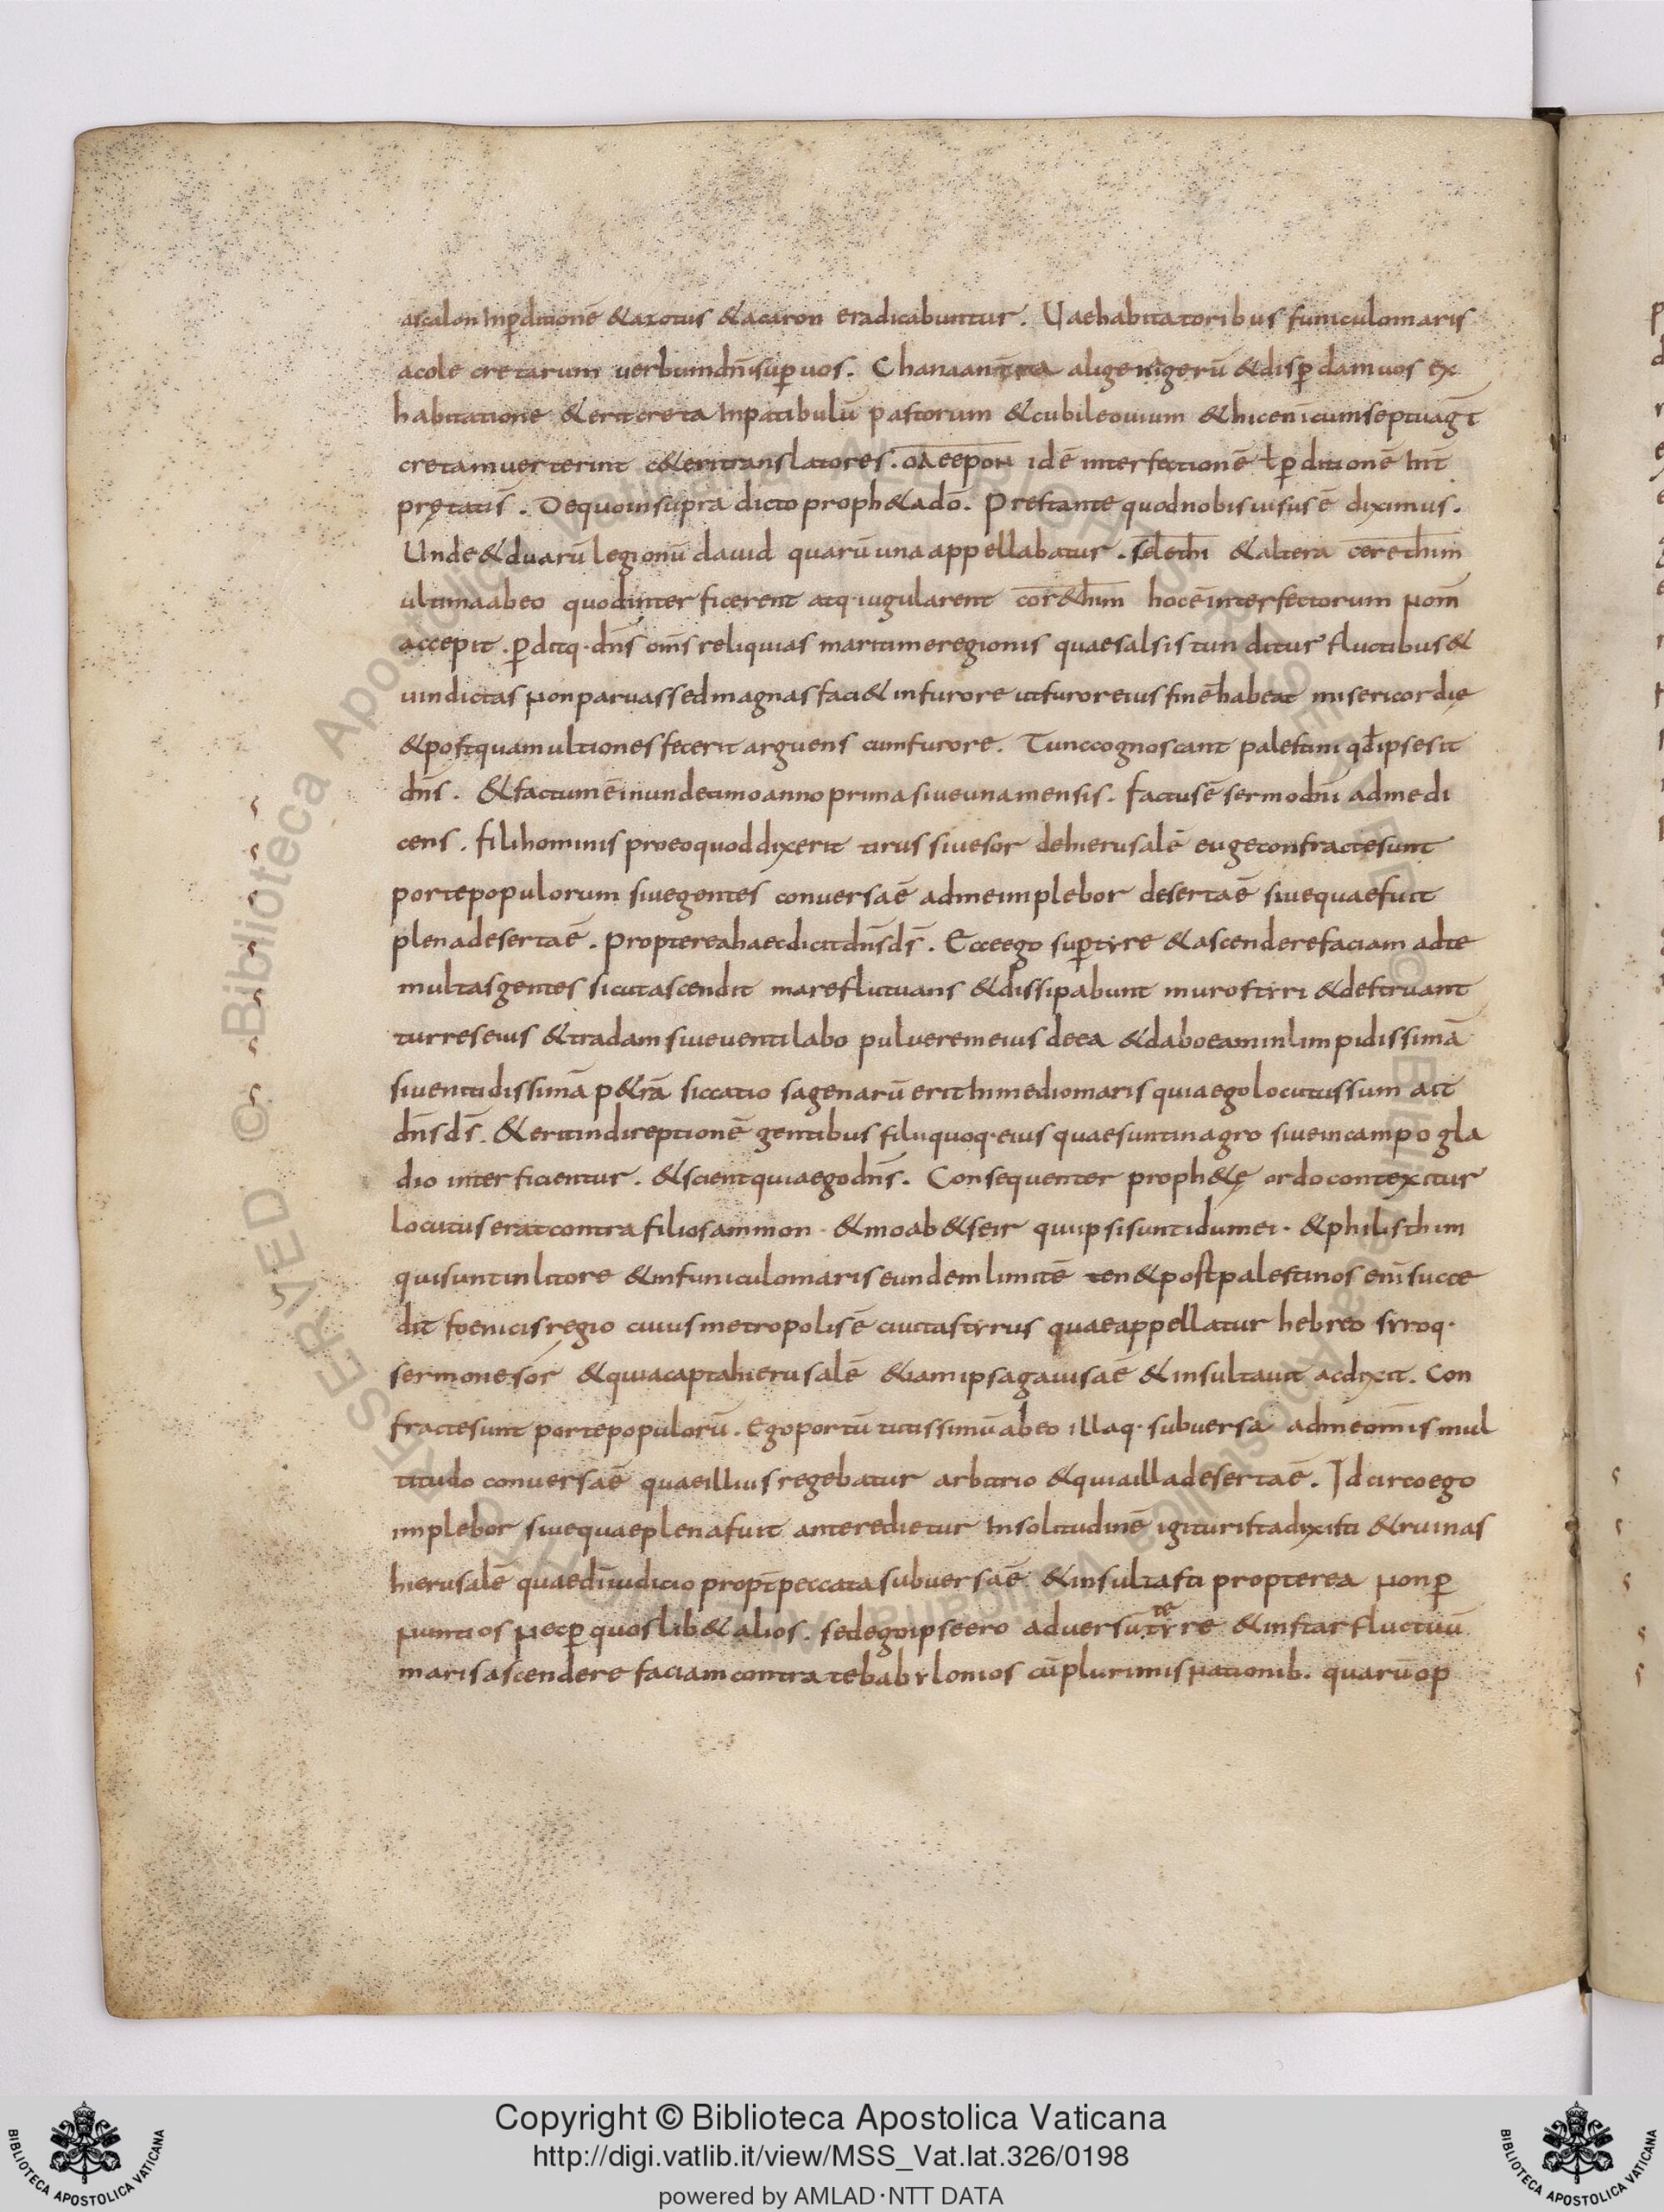 ascalon in p̄ditionē & azotus & acaron eradicabuntur. Uae habitatoribus funiculo maris
acole cretarum uerbum dn̄i sup̄ uos. Chanaan terra aligenigerū & disp̄dam uos ex
habitatione & erit creta in patibulū pastorum & cubile ouium & hic enī cum septuagī
cretam uerterint ceteri translatores. idē interfectionē ł p̄ditionē int̄
prętatis̄. De quo in supra dicto proph&a dō. Prestante quod nobis uisus ē diximus.
Unde & duarū legionū dauid quarū una appellabatur. selethi & altera cerethim
ultima ab eo quod interficerent atq· iugularent cor&him hoc ē interfectorum nom̄
accepit. p̄ditq· dn̄s om̄s reliquias maritime regionis quae salsis tunditur fluctibus &
uindictas non paruas sed magnas faci& in furore ut furor eius finē habeat misericordię
& postquam ultiones fecerit arguens cum furore. Tunc cognoscant palestini qd̄ ipse sit
dn̄s. & factum ē in undecimo anno prima siue una mensis. factus ē sermo dn̄i ad me di
cens. fili hominis pro eo quod dixerit tirus siue sor de hierusalē euge confracte sunt
porte populorum siue gentes conuersa ē ad me implebor deserta ē siue quae fuit
plena deserta ē. propterea haec dicit dn̄s ds̄. Ecce ego sup̄ tyre & ascendere faciam ad te
multas gentes sicut ascendit mare fluctuans & dissipabunt muros tyri & destruant
turres eius & tradam siue uentilabo puluerem eius de ea & dabo eam in limpidissimā
siue nitidissimā p&rā siccatio sagenarū erit in medio maris quia ego locutus sum ait
dn̄s ds̄. & erit in direptionē gentibus filii quoq· eius quae sunt in agro siue in campo gla
dio interficientur. & scient quia ego dn̄s. Consequenter proph&ę ordo contexitur
locutus erat contra filios ammon. & moab & seir qui ipsi sunt idumei. & philisthim
qui sunt in litore & in funiculo maris eundem limitē ten& post palestinos enī succe
dit foenicis regio cuius metropolis ē ciuitas tyrus quae appellatur hebreo syroq·
sermone sor & quia capta hierusalē &iam ipsa gauisa ē & insultauit ac dixit. Con
fracte sunt porte populorū. Ego portū tutissimū abeo illaq· subuersa ad me omīs mul
titudo conuersa ē quae illius regebatur arbitrio & quia illa deserta ē. Idcirco ego
implebor siue quae plena fuit ante redietur in solitudinē igitur ista dixisti & ruinas
hierusalē quae dī iudicio propt̄ peccata subuersa ē & insultasti propterea non p̄
nuntios nec p̄ quoslib& alios. sed ego ipse ero aduersū te tyre & instar fluctuū
maris ascendere faciam contra te babylonios cū plurimis nationib. quarū op
Copyright © Biblioteca Apostolica Vaticana
http://digi.vatlib.it/view/MSS_Vat.lat.326/0198
powered by AMLAD·NTT DATA
BIBLIOTECA APOSTOLICA VATICANA
BIBLIOTECA APOSTOLICA VATICANA